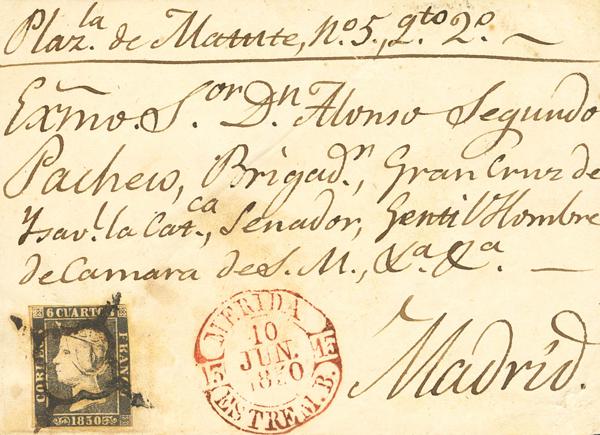 Plaz.la de Matute, No. 5, 2to. 2o. —
Exmo. S.or D.n Alonso Segundo
Pacheco, Brigad.n, Gran Cruz de
Ysav.l la Cat.ca, Senador, Gentil Hombre
de Camara de S. M., &a. &a. —
Madrid.
6 CUARTOS
CORREOS
FRANCO
1850
MERIDA
10
JUN.
1850
13 13
ESTREM. B.